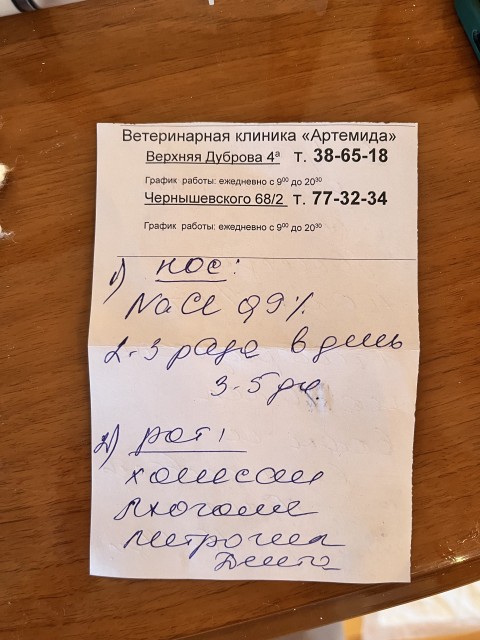 Ветеринарная клиника «Артемида»
Верхняя Дуброва 4а т. 38-65-18
График работы: ежедневно с 9⁰⁰ до 20³⁰
Чернышевского 68/2 т. 77-32-34
График работы: ежедневно с 9⁰⁰ до 20³⁰
1) нос:
NaCl 0,9%
2-3 раза в день
3-5 дн.
2) рот:
холисал
метрогил
Дента